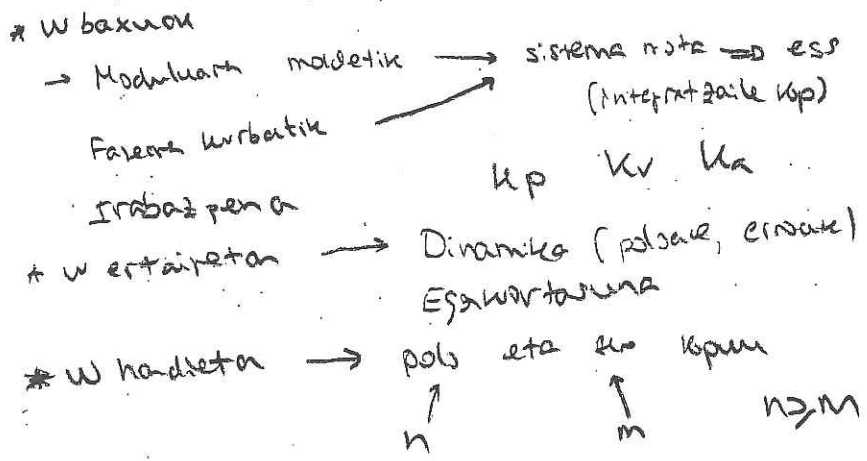 * W baxuak
→ Moduluaren maldetik → sistema mota ⇒ ess
(integratzaile kop)
Fasearen kurbatik
Irabazpena
Kp Kv Ka
* W ertainetan → Dinamika (poloak, zeroak)
Egonkortasuna
* W handieta → polo eta zero kopuru
n m n≥m